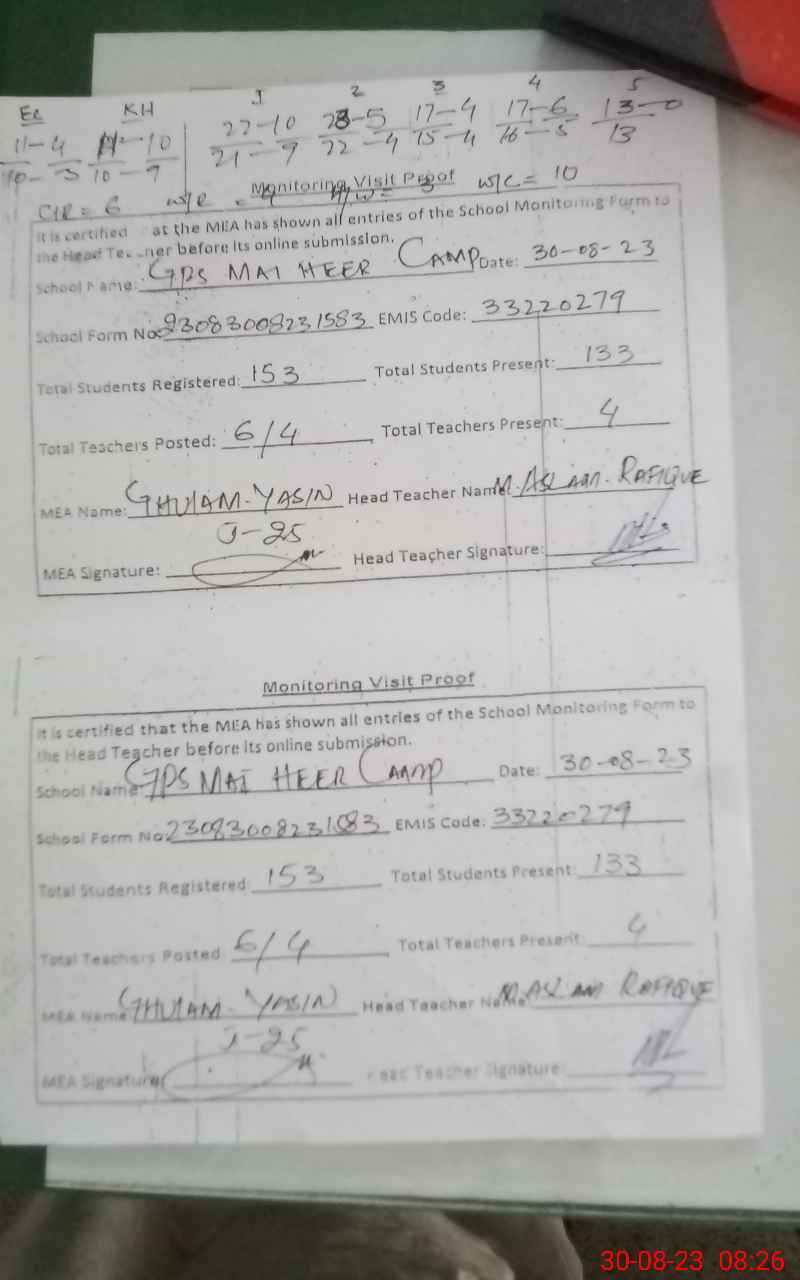 Ec KH 1 2 3 4 5
11-4 11-10 22-10 23-5 17-4 17-6 13-0
10-3 10-9 21-9 22-4 15-4 16-5 13
Monitoring Visit Proof
C/R = 6 W/R = 4 W/C = 10
It is certified at the MEA has shown all entries of the School Monitoring Form to
the Head Teacher before its online submission.
School Name: GPS MAI HEER CAMP Date: 30-08-23
School Form No: 23083008231583 EMIS Code: 33220279
Total Students Registered: 153 Total Students Present: 133
Total Teachers Posted: 6/4 Total Teachers Present: 4
MEA Name: GHULAM-YASIN Head Teacher Name: M.ASLAM-RAFIQUE
J-25
MEA Signature: Head Teacher Signature:
Monitoring Visit Proof
It is certified that the MEA has shown all entries of the School Monitoring Form to
the Head Teacher before its online submission.
School Name GPS MAI HEER CAMP Date: 30-08-23
School Form No 23083008231583 EMIS Code: 33220279
Total Students Registered 153 Total Students Present: 133
Total Teachers Posted 6/4 Total Teachers Present 4
MEA Name GHULAM-YASIN Head Teacher Name M.ASLAM RAFIQUE
J-25
MEA Signature Head Teacher Signature
30-08-23 08:26